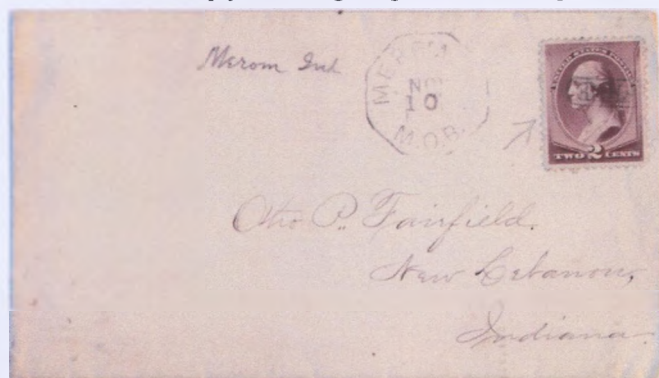 Merom Ind
MEROM
NO
10
M.O.B.
UNITED STATES POSTAGE
TWO 2 CENTS
Otho P. Fairfield.
New Lebanon,
Indiana